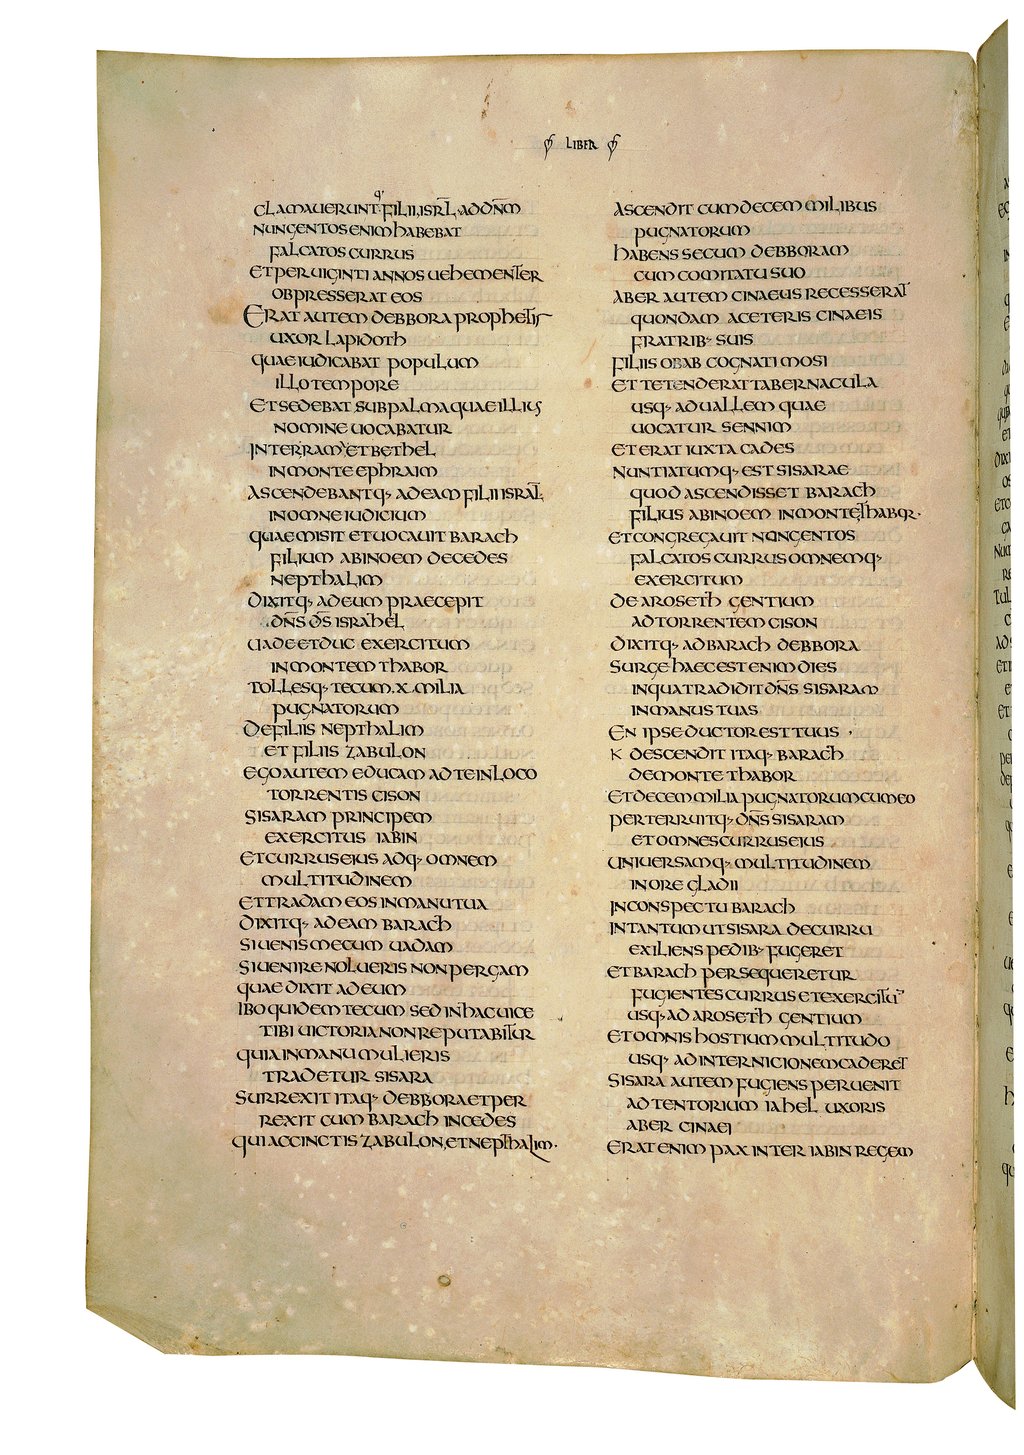 LIBER
CLAMAUERUNTq' FILII ISRL AD DNM
NUNGENTOS ENIM HABEBAT
FALCATOS CURRUS
ET PER UIGINTI ANNOS UEHEMENTER
OBPRESSERAT EOS
ERAT AUTEM DEBBORA PROPHETIS
UXOR LAPIDOTH
QUAE IUDICABAT POPULUM
ILLO TEMPORE
ET SEDEBAT SUB PALMA QUAE ILLIUS
NOMINE UOCABATUR
INTER RAMA ET BETHEL
IN MONTE EPHRAIM
ASCENDEBANTQ· AD EAM FILII ISRAL
IN OMNE IUDICIUM
QUAE MISIT ET UOCAUIT BARACH
FILIUM ABINOEM DE CEDES
NEPTHALIM
DIXITQ· AD EUM PRAECEPIT
DNS DS ISRAHEL
UADE ET DUC EXERCITUM
IN MONTEM THABOR
TOLLESQ· TECUM .X. MILIA
PUGNATORUM
DE FILIIS NEPTHALIM
ET FILIIS ZABULON
EGO AUTEM EDUCAM AD TE IN LOCO
TORRENTIS CISON
SISARAM PRINCIPEM
EXERCITUS IABIN
ET CURRUS EIUS ADQ· OMNEM
MULTITUDINEM
ET TRADAM EOS IN MANU TUA
DIXITQ· AD EAM BARACH
SI UENIS MECUM UADAM
SI UENIRE NOLUERIS NON PERGAM
QUAE DIXIT AD EUM
IBO QUIDEM TECUM SED IN HAC UICE
TIBI UICTORIA NON REPUTABITUR
QUIA IN MANU MULIERIS
TRADETUR SISARA
SURREXIT ITAQ· DEBBORA ET PER
REXIT CUM BARACH IN CEDES
QUI ACCINCTIS ZABULON, ET NEPTHALIM·
ASCENDIT CUM DECEM MILIBUS
PUGNATORUM
HABENS SECUM DEBBORAM
CUM COMITATU SUO
ABER AUTEM CINAEUS RECESSERAT
QUONDAM A CETERIS CINAEIS
FRATRIB· SUIS
FILIIS OBAB COGNATI MOSI
ET TETENDERAT TABERNACULA
USQ· AD UALLEM QUAE
UOCATUR SENNIM
ET ERAT IUXTA CADES
NUNTIATUMQ· EST SISARAE
QUOD ASCENDISSET BARACH
FILIUS ABINOEM IN MONTE THABOR·
ET CONGREGAUIT NONGENTOS
FALCATOS CURRUS OMNEMQ·
EXERCITUM
DE AROSETH GENTIUM
AD TORRENTEM CISON
DIXITQ· AD BARACH DEBBORA
SURGE HAEC EST ENIM DIES
IN QUA TRADIDIT DNS SISARAM
IN MANUS TUAS
EN IPSE DUCTOR EST TUUS ·
K DESCENDIT ITAQ· BARACH
DE MONTE THABOR
ET DECEM MILIA PUGNATORUM CUM EO
PERTERRUITQ· DNS SISARAM
ET OMNES CURRUS EIUS
UNIUERSAMQ· MULTITUDINEM
IN ORE GLADII
IN CONSPECTU BARACH
IN TANTUM UT SISARA DE CURRU
EXILIENS PEDIB· FUGERET
ET BARACH PERSEQUERETUR
FUGIENTES CURRUS ET EXERCITU
USQ· AD AROSETH GENTIUM
ET OMNIS HOSTIUM MULTITUDO
USQ· AD INTERNICIONEM CADERET
SISARA AUTEM FUGIENS PERUENIT
AD TENTORIUM IAHEL UXORIS
ABER CINAEI
ERAT ENIM PAX INTER IABIN REGEM